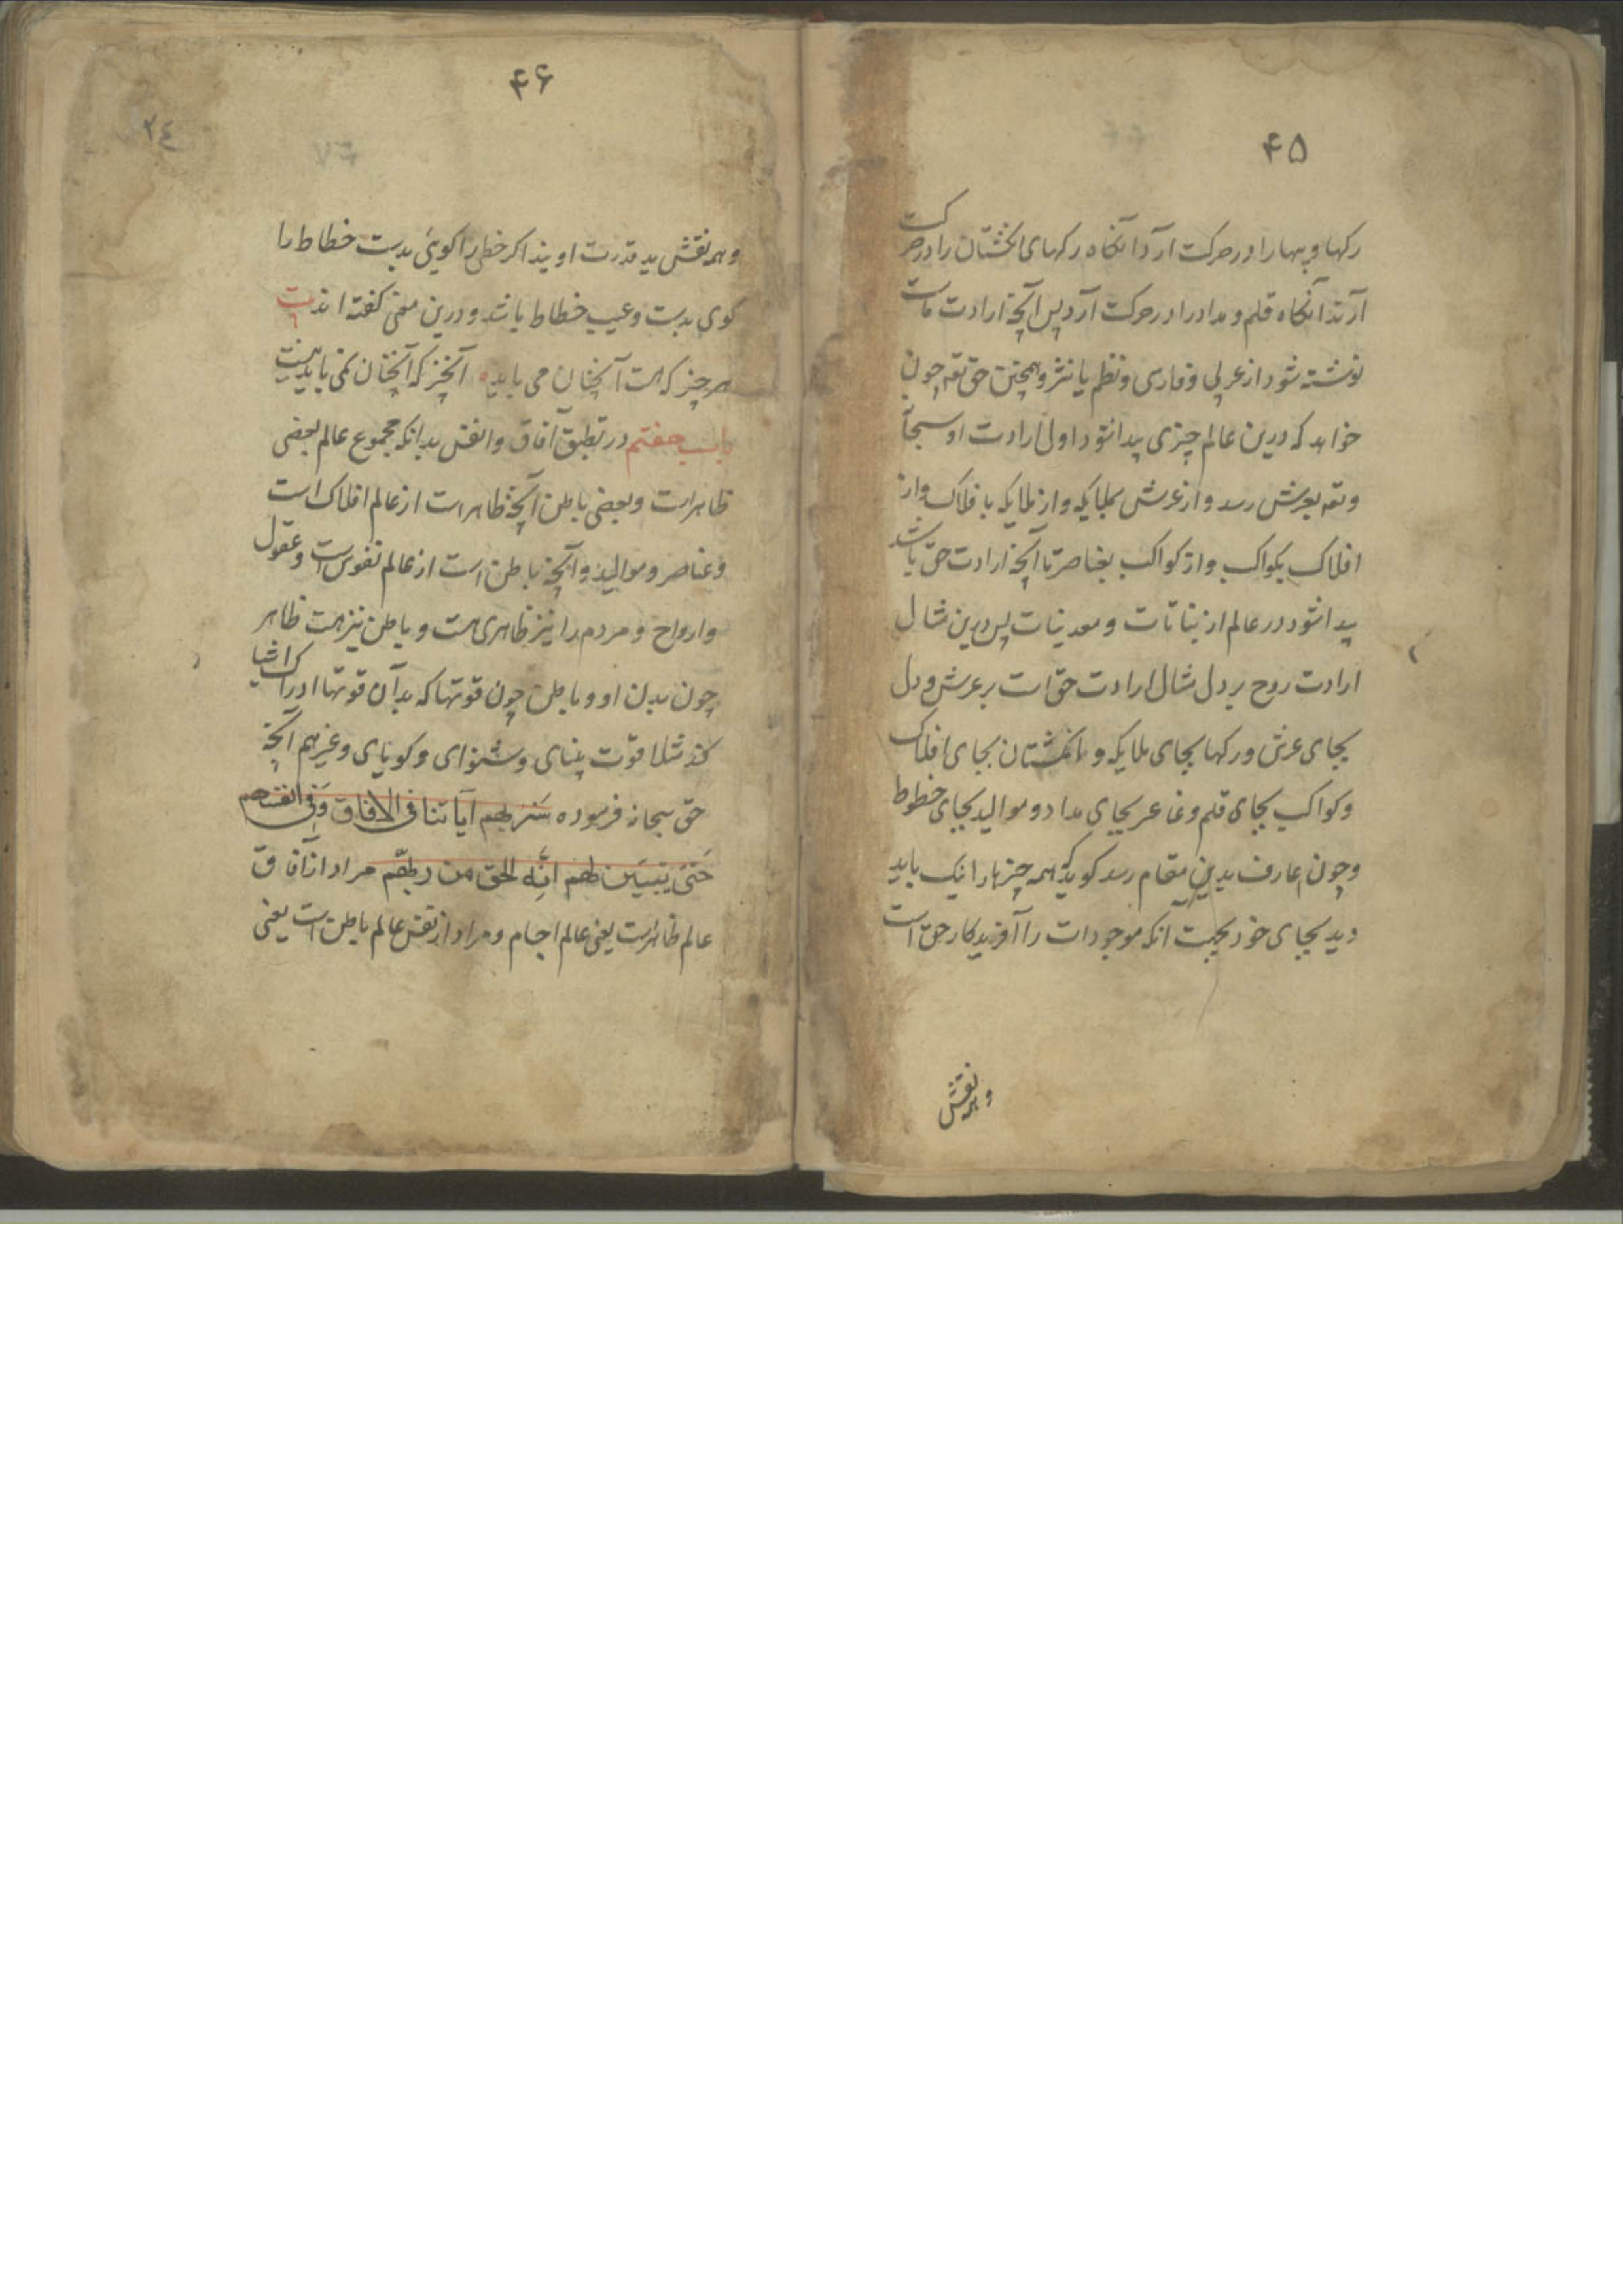 ۴۵
رکها و پیها را در حرکت آرد آنکاه رکهای انکشتان را در حرکت
آرند آنکاه قلم و مداد را در حرکت آرد پس آنچه ارادت ماست
نوشته شود از عربی و فارسی و نظم یا نثر و همچنین حق تعه چون
خواهد که درین عالم چیزی پیدا شود اول ارادت او سبحانه
وتعه بعرش رسد و از عرش بملایکه و از ملایکه بافلاک و از
افلاک بکواکب و از کواکب بعناصر تا آنچه ارادت حق باشد
پیدا شود در عالم از نباتات و معدنیات پس درین مثال
ارادت روح بر دل مثال ارادت حق است بر عرش و دل
بجای عرش و رکها بجای ملایکه و انکشتان بجای افلاک
و کواکب بجای قلم و عناصر بجای مداد و موالید بجای خطوط
و چون عارف بدین مقام رسد کوید که همه چیزها را نیک باید
دید بجای خود بجهت آنکه موجودات را آفریدکار حق است
و همه نقش
۴۶
۲٤
و همه نقش ید قدرت اویند اکر خطی را کویی بدست خطاط را
کوی بدست و عیب خطاط باشد و درین معنی کفته اند بیت
هر چیز که هست آنچنان می باید آنچیز که آنچنان نمی باید نیست
باب هفتم در تطبیق آفاق و انفس بدانکه مجموع عالم بعضی
ظاهر است و بعضی باطن آنچه ظاهر است از عالم افلاک است
و عناصر و موالید و آنچه باطن است از عالم نفوس است و عقول
و ارواح و مردم را نیز ظاهری هست و باطن نیز هست ظاهر
چون بدن او و باطن چون قوتها که بدان قوتها ادراک اشیا
کند مثلا قوت بینای و شنوای و کویای و غیرهم آنچه
حق سبحانه فرموده سَنُریهِم آیاتنا فی الافاق وَفی انفسهم
حَتّی یتبیّن لهم اَنّه الحق من ربّهم مراد از آفاق
عالم ظاهرست یعنی عالم اجسام و مراد از نفس عالم باطن است یعنی